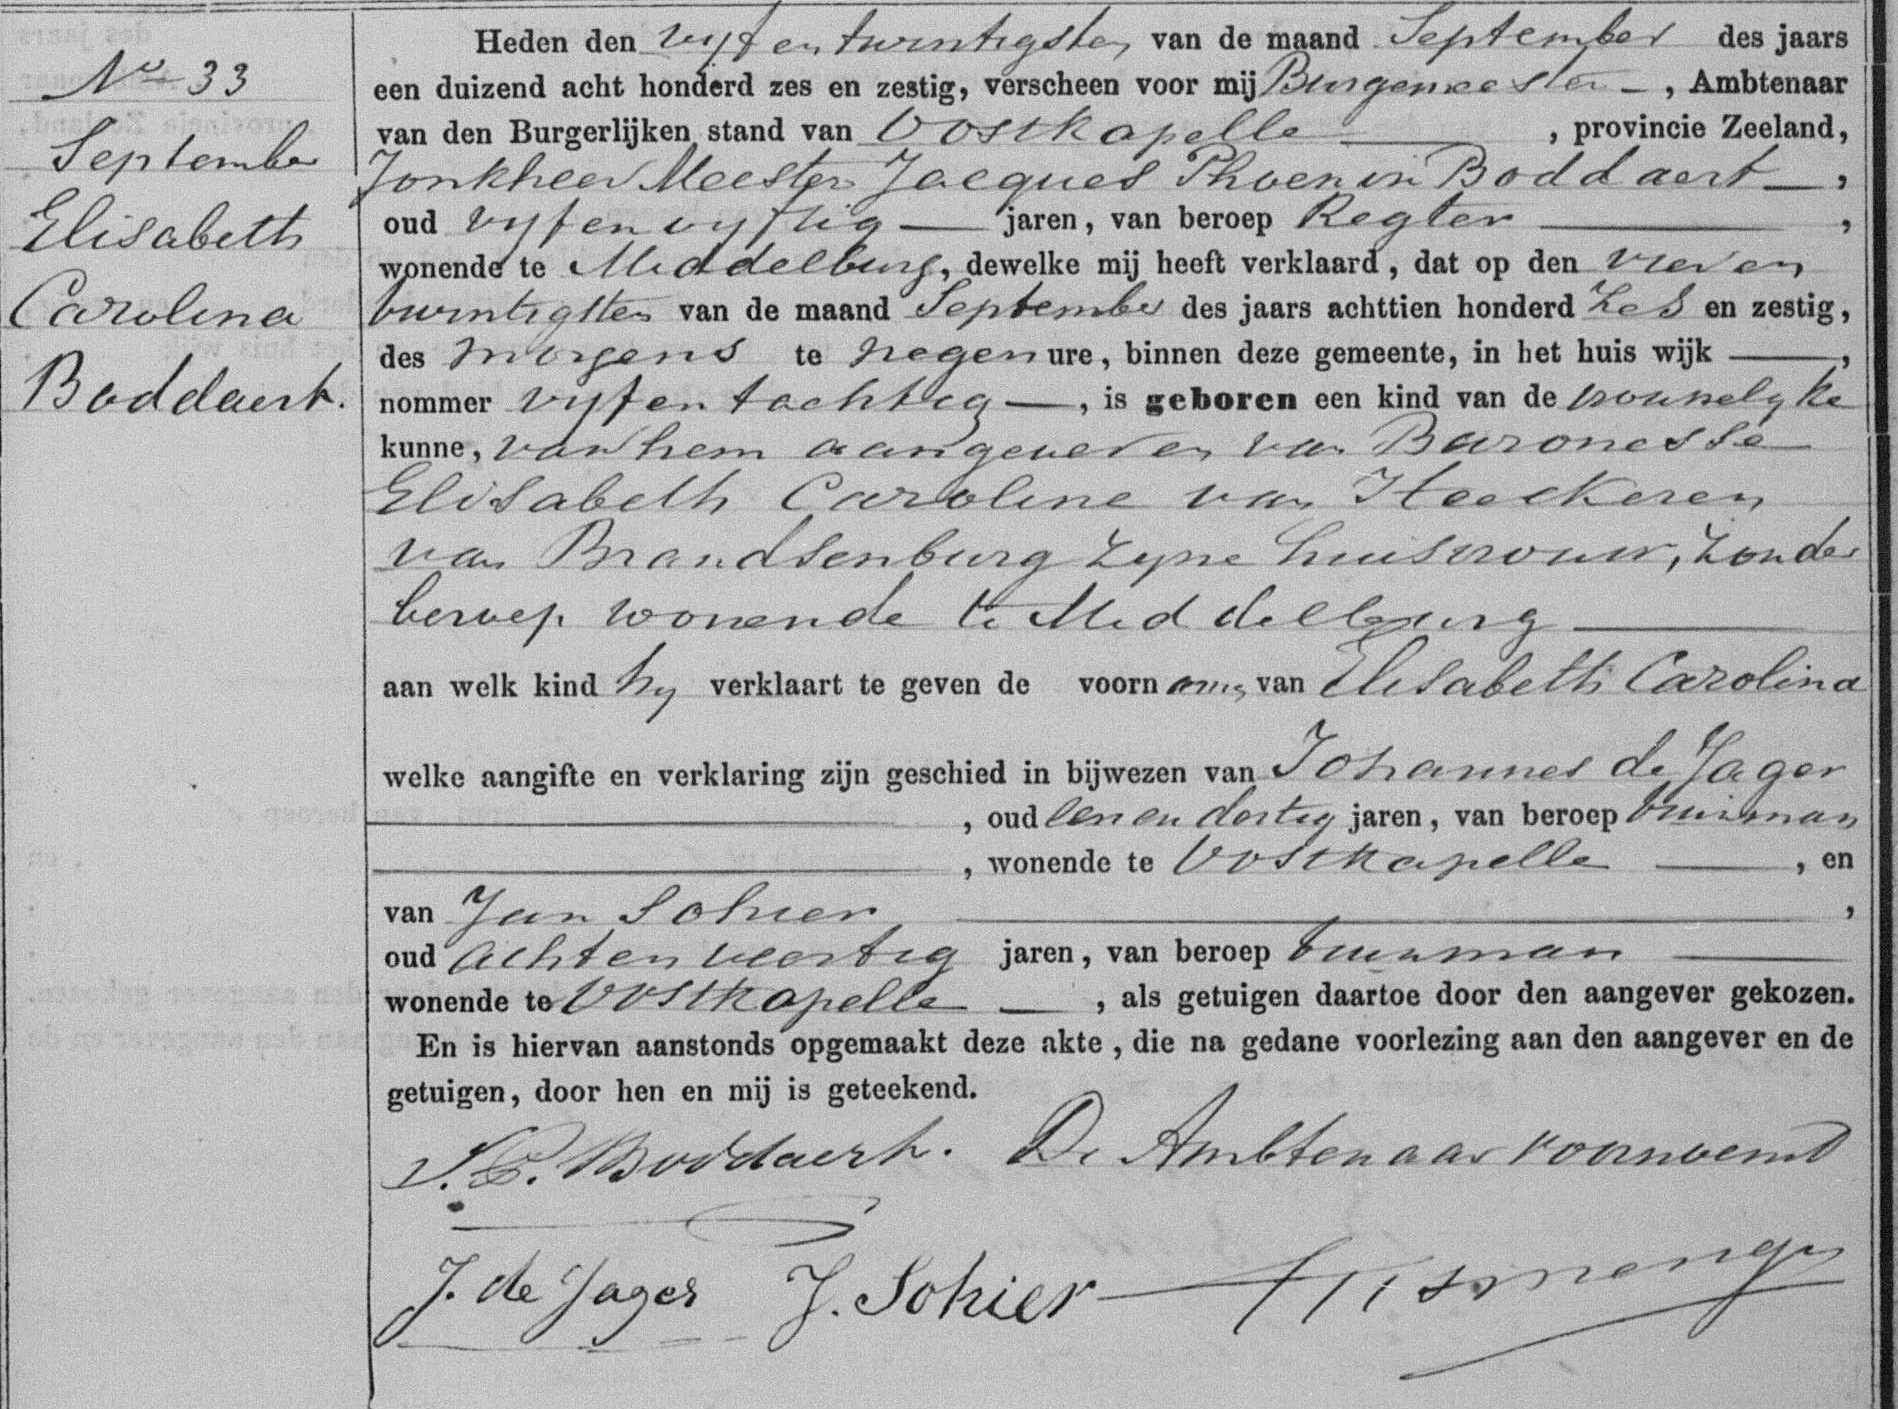 No 33
September
Elisabeth
Carolina
Boddaert.
Heden den vyf en twintigsten van de maand September des jaars
een duizend acht honderd zes en zestig, verscheen voor mij Burgemeester, Ambtenaar
van den Burgerlijken stand van Oostkapelle, provincie Zeeland,
Jonkheer Meester Jacques Phoenix Boddaert,
oud vyfenvyftig jaren, van beroep Regter,
wonende te Middelburg, dewelke mij heeft verklaard, dat op den vier en
twintigsten van de maand September des jaars achttien honderd zes en zestig,
des morgens te negen ure, binnen deze gemeente, in het huis wijk ,
nommer vyfentachtig, is geboren een kind van de vrouwelyke
kunne, van hem aangever en van Baronesse
Elisabeth Caroline van Heeckeren
van Brandsenburg zyne huisvrouw, zonder
beroep wonende te Middelburg
aan welk kind hy verklaart te geven de voornamen van Elisabeth Carolina
welke aangifte en verklaring zijn geschied in bijwezen van Johannes de Jager
, oud een en dertig jaren, van beroep tuinman
, wonende te Oostkapelle, en
van Jan Sohier,
oud achtenveertig jaren, van beroep tuinman
wonende te Oostkapelle, als getuigen daartoe door den aangever gekozen.
En is hiervan aanstonds opgemaakt deze akte, die na gedane voorlezing aan den aangever en de
getuigen, door hen en mij is geteekend.
Boddaert. De Ambtenaar voornoemd
J. de Jager J. Sohier